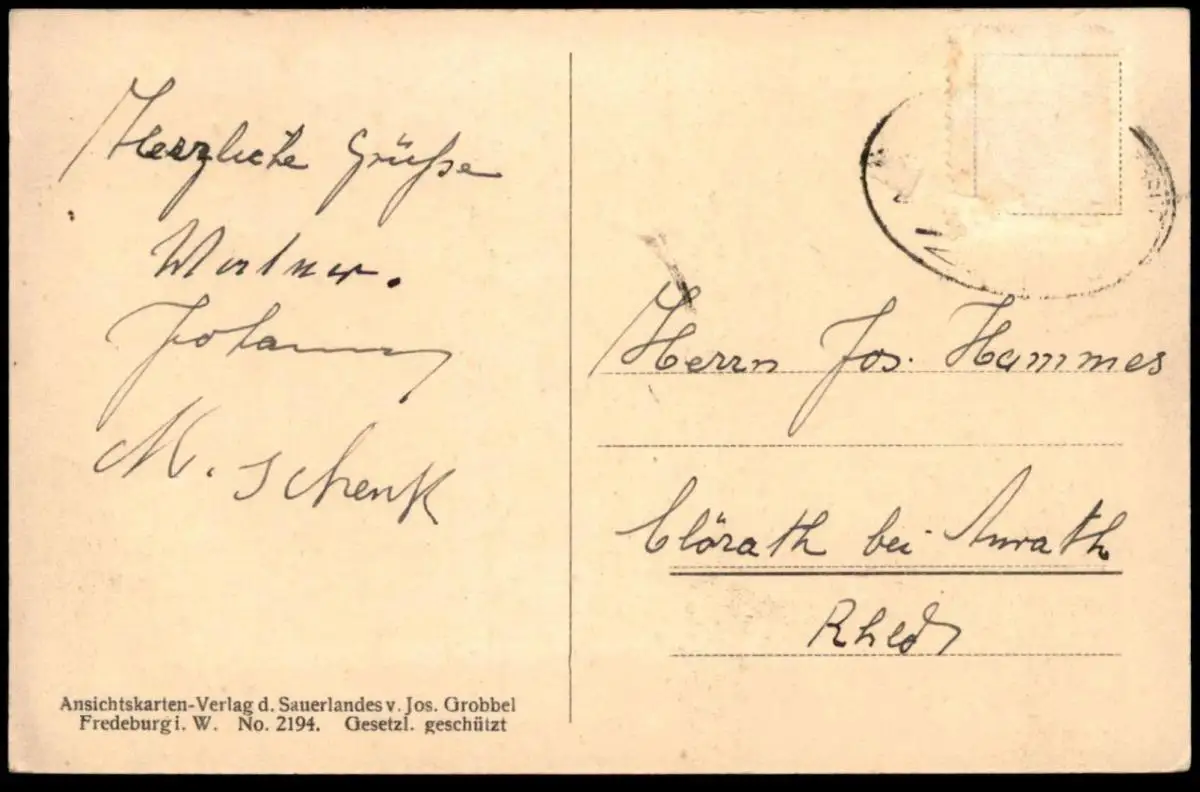 Herzliche Grüße
Werner.
Johann
M. Schenk
Herrn Jos. Hammes
Clörath bei Anrath
Rhld
Ansichtskarten-Verlag d. Sauerlandes v. Jos. Grobbel
Fredeburg i. W. No. 2194. Gesetzl. geschützt